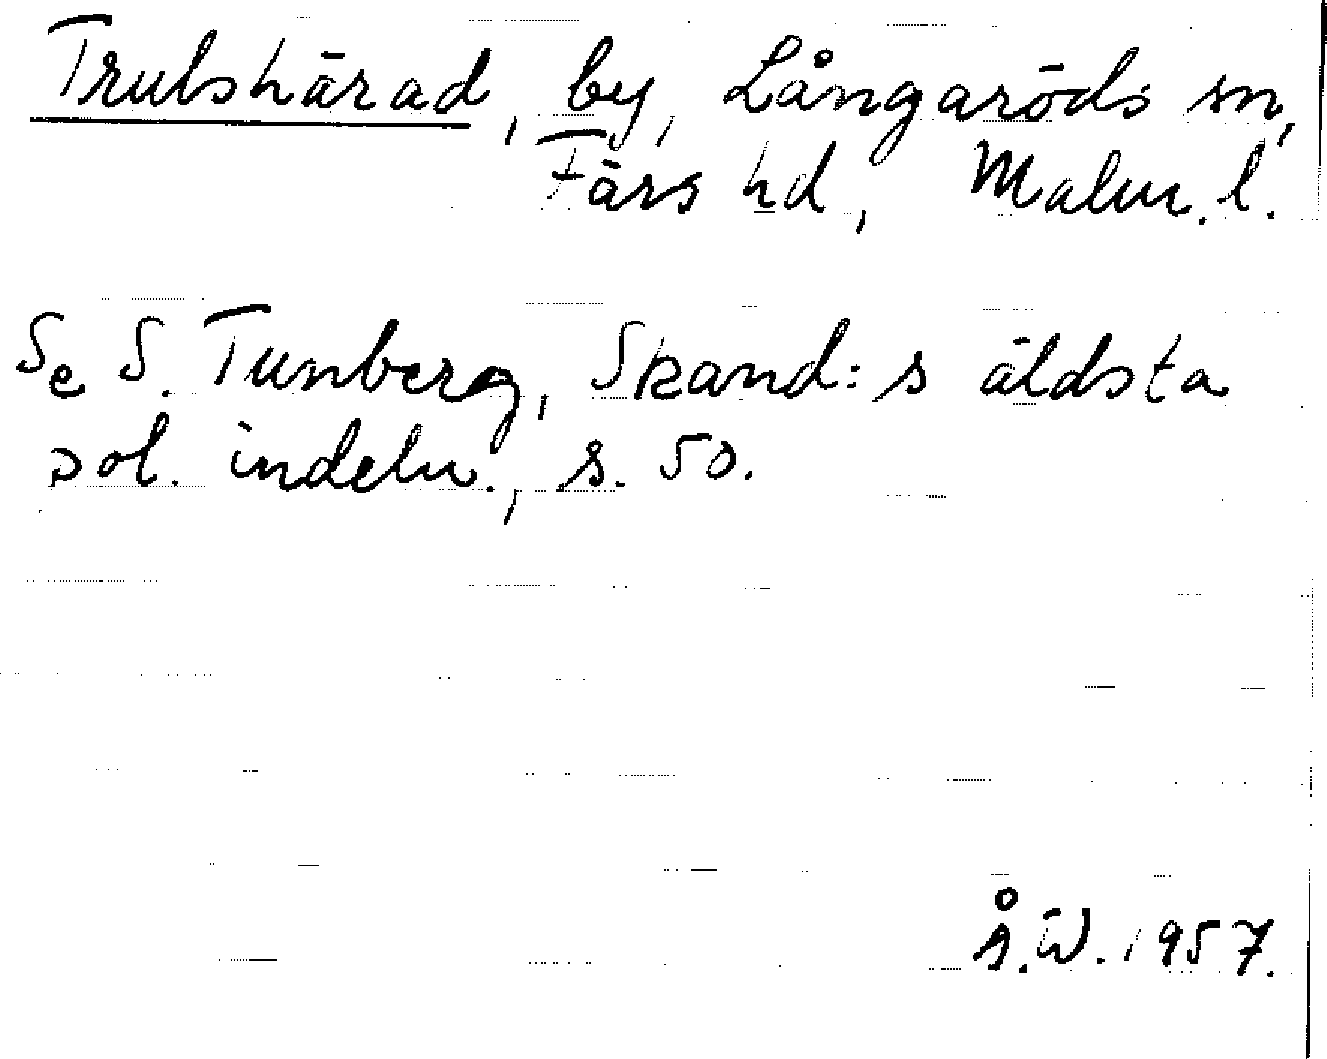 Trulshärad, by, Långaröds sn,
Färs hd, Malm. l.
Se S. Tunberg, Skand:s äldsta
pol. indeln., s. 50.
Å.W. 1957.